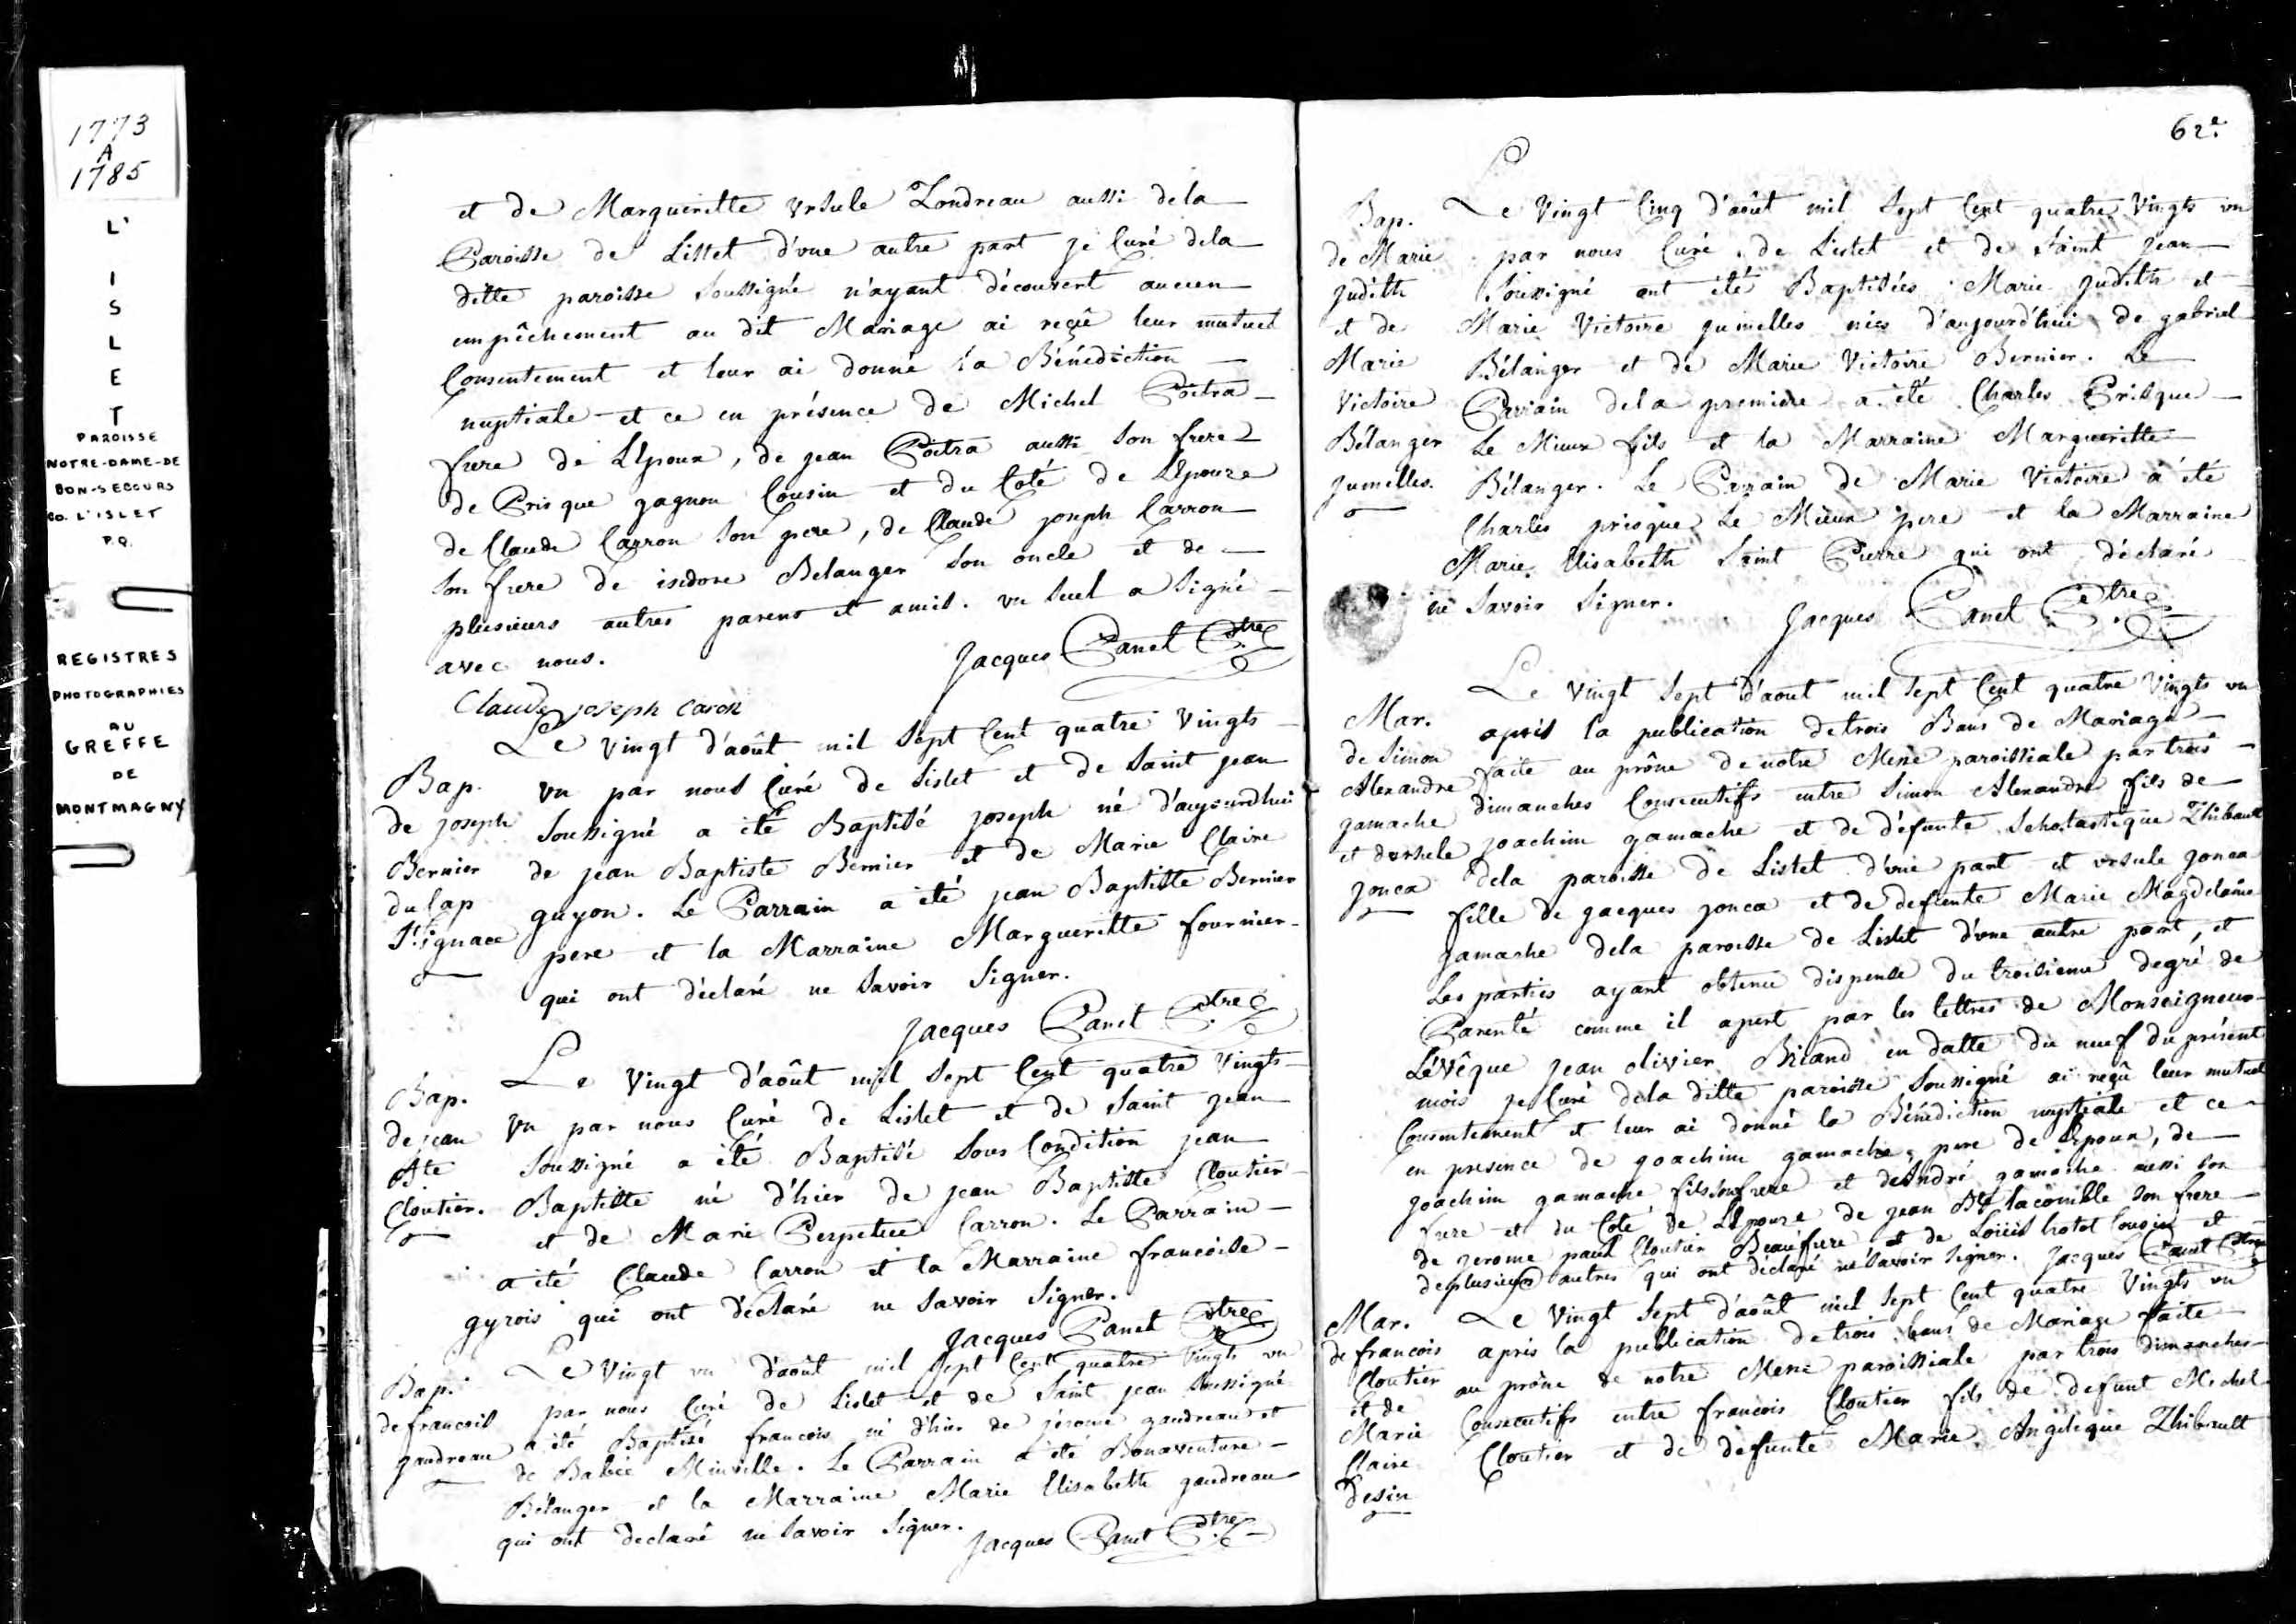 1773
A
1785
L'
I
S
L
E
T
PAROISSE
NOTRE-DAME-DE
BON-SECOURS
CO. L'ISLET
P.Q.
REGISTRES
PHOTOGRAPHIES
AU
GREFFE
DE
MONTMAGNY
et de Margueritte Ursule Londreau aussi dela
Paroisse de Lislet d'vne autre part je Curé dela
ditte paroisse soussigné n'ayant découvert aucun
empêchement au dit Mariage ai reçû leur mutuel
Consentement et leur ai donné la Bénédiction
nuptiale et ce en présence de Michel Poitra
frere de L'Epoux, de jean Poitra aussi son frere
de Prisque gagnon Cousin et du Coté de L'Epouze
de Claude Carron son pere, de Claude joseph Carron
son frere de isidore Belanger son oncle et de
plusieurs autres parens et amis. vn seul a signé
avec nous.
Jacques Panet Ptre
Claude joseph caron
Bap.
de joseph
Bernier
du Cap
St. ignace
Le vingt d'août mil sept Cent quatre vingts
vn par nous Curé de Lislet et de saint jean
soussigné a été Baptisé joseph né d'aujourdhui
de jean Baptiste Bernier et de Marie Claire
guyon. Le Parrain a été jean Baptiste Bernier
pere et la Marraine Marguerite fournier
qui ont déclaré ne savoir signer.
Jacques Panet Ptre
Bap.
de jean
Bte
Cloutier.
Le vingt d'août mil sept Cent quatre vingts
vn par nous Curé de Lislet et de saint jean
soussigné a été Baptisé sous Condition jean
Baptiste né d'hier de jean Baptiste Cloutier
et de Marie Perpetue Carron. Le Parrain
a été Claude Carron et la Marraine francoise
gyrois qui ont déclaré ne savoir signer.
Jacques Panet Ptre
Bap.
de francois
gaudreau
Le vingt vn d'août mil sept Cent quatre vingts vn
par nous Curé de Lislet et de saint jean soussigné
a été Baptisé francois né d'hier de jérome gaudreau et
de Babée Miuville. Le Parrain a été Bonaventure
Bélanger et la Marraine Marie Elisabeth gaudreau
qui ont declaré ne savoir signer.
Jacques Panet Ptre
62e.
Bap.
de Marie
judith
et de
Marie
Victoire
Bélanger
jumelles.
Le vingt Cinq d'août mil sept Cent quatre vingts vn
par nous Curé de Lislet et de saint jean
soussigné ont été Baptisées Marie judith et
Marie Victoire jumelles nées d'aujourd'hui de gabriel
Bélanger et de Marie Victoire Bernier. Le
Parrain dela premiere a été Charles Prisque
Le Mieux fils et la Marraine Marguerite
Bélanger. Le Parrain de Marie Victoire a été
Charles prisque Le Mieux pere et la Marraine
Marie Elisabeth Saint Pierre qui ont déclaré
ne savoir signer.
Jacques Panet Ptre
Mar.
de simon
Alexandre
gamache
et dursule
jonca
Le vingt sept d'aout mil sept Cent quatre vingts vn
après la publication de trois Bans de Mariage
faite au prône de notre Messe paroissiale par trois
dimanches Consecutifs entre simon Alexandre fils de
joachim gamache et de défunte scholastique Thibault
dela paroisse de Lislet d'vne part et vrsule jonca
fille de jacques jonca et de defunte Marie Magdelaine
gamache dela paroisse de Lislet d'vne autre part, et
les parties ayant obtenu dispense du troisieme degré de
Parenté comme il apert par les lettres de Monseigneur
L'évêque jean olivier Briand en datte du neuf du présent
mois je Curé dela ditte paroisse soussigné ai reçû leur mutuel
Consentement et leur ai donné la Bénédiction nuptiale et ce
en présence de joachim gamache pere de L'Epoux, de
joachim gamache fils son frere et de André gamache aussi son
frere et du Coté de L'Epouze de jean Bte lacomble son frere
de jerome paul Cloutier Beaufrere et de Loüis hotot cousin et
de plusieurs autres qui ont déclaré ne savoir signer. Jacques Panet Ptre
Mar.
de francois
Cloutier
et de
Marie
Claire
desin
Le vingt sept d'août mil sept Cent quatre vingts vn
après la publication de trois bans de Mariage faite
au prône de notre Messe paroissiale par trois dimanches
Consecutifs entre francois Cloutier fils de defunt Michel
Cloutier et de defunte Marie Angelique Thibault